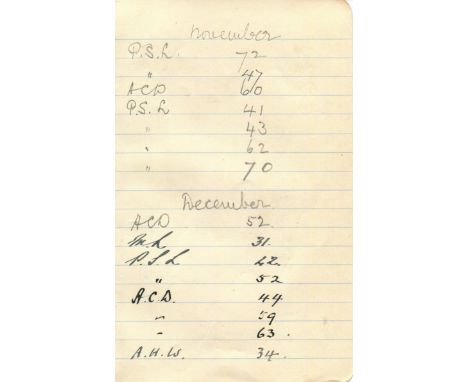 November
P.S.L. 72
" 47
ACD 60
P.S.L 41
" 43
" 62
" 70
December
ACD 52.
M.L 31.
P.S.L 42.
" 52
A.C.D. 44.
" 59
" 63.
A.H.W. 34.